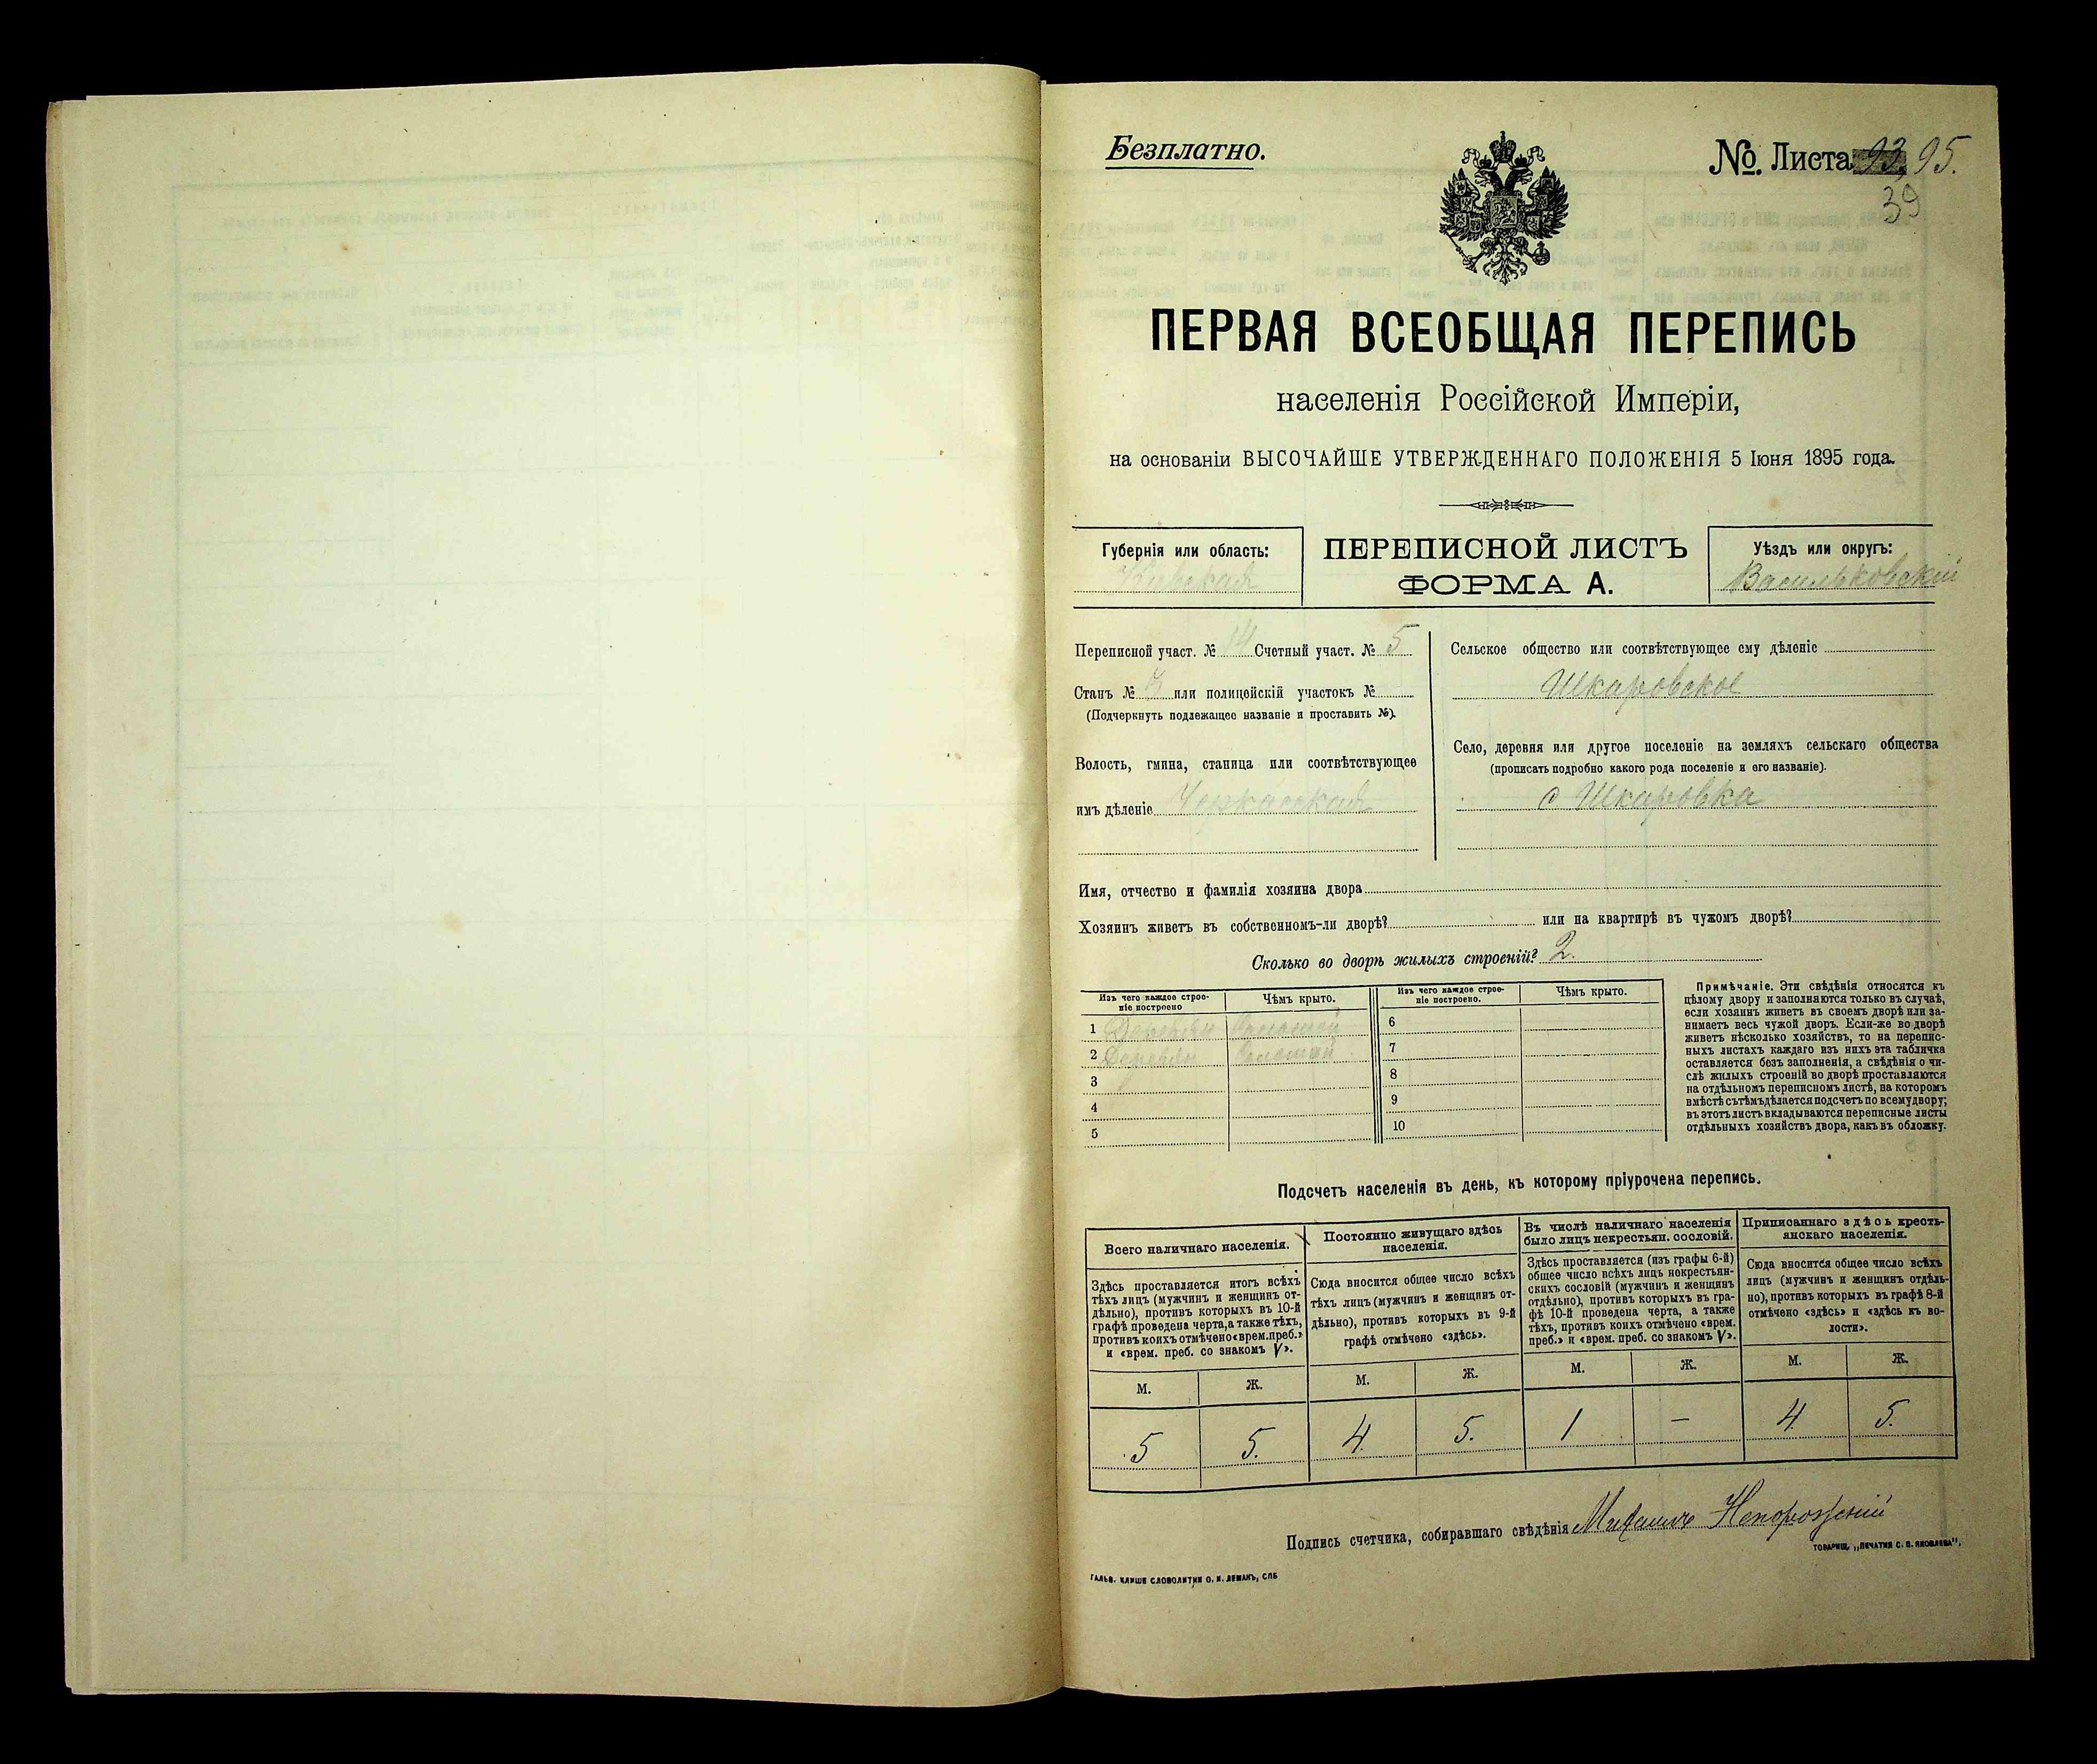 Безплатно.
№. Листа 93, 95.
39
ПЕРВАЯ ВСЕОБЩАЯ ПЕРЕПИСЬ
населенія Россійской Имперіи,
на основаніи ВЫСОЧАЙШЕ УТВЕРЖДЕННАГО ПОЛОЖЕНІЯ 5 Іюня 1895 года.
Губернія или область:
Кіевская
ПЕРЕПИСНОЙ ЛИСТЪ
ФОРМА А.
Уѣздъ или округъ:
Васильковскій
Переписной участ. № 14 Счетный участ. № 5
Станъ № или полицейскій участокъ №
(Подчеркнуть подлежащее названіе и проставить №).
Волость, гмина, станица или соотвѣтствующее
имъ дѣленіе Черкасская
Сельское общество или соотвѣтствующее ему дѣленіе
Шкаровское
Село, деревня или другое поселеніе на земляхъ сельскаго общества
(прописать подробно какого рода поселеніе и его названіе).
с Шкаровка
Имя, отчество и фамилія хозяина двора
Хозяинъ живетъ въ собственномъ-ли дворѣ? или на квартирѣ въ чужомъ дворѣ?
Сколько во дворѣ жилыхъ строеній? 2.
Изъ чего каждое строе-
ніе построено
Чѣмъ крыто.
Изъ чего каждое строе-
ніе построено.
Чѣмъ крыто.
1 Деревян Соломой
2 Деревян Соломой
3
4
5
6
7
8
9
10
Примѣчаніе. Эти свѣдѣнія относятся къ
цѣлому двору и заполняются только въ случаѣ,
если хозяинъ живетъ въ своемъ дворѣ или за-
нимаетъ весь чужой дворъ. Если-же во дворѣ
живетъ нѣсколько хозяйствъ, то на перепис-
ныхъ листахъ каждаго изъ нихъ эта табличка
оставляется безъ заполненія, а свѣдѣнія о чи-
слѣ жилыхъ строеній во дворѣ проставляются
на отдѣльномъ переписномъ листѣ, на которомъ
вмѣстѣ съ тѣмъ дѣлается подсчетъ по всему двору;
въ этотъ листъ вкладываются переписные листы
отдѣльныхъ хозяйствъ двора, какъ въ обложку.
Подсчетъ населенія въ день, къ которому пріурочена перепись.
Всего наличнаго населенія.
Здѣсь проставляется итогъ всѣхъ
тѣхъ лицъ (мужчинъ и женщинъ от-
дѣльно), противъ которыхъ въ 10-й
графѣ проведена черта, а также тѣхъ,
противъ коихъ отмѣчено «врем. преб.»
и «врем. преб. со знакомъ V».
Постоянно живущаго здѣсь
населенія.
Сюда вносится общее число всѣхъ
тѣхъ лицъ (мужчинъ и женщинъ от-
дѣльно), противъ которыхъ въ 9-й
графѣ отмѣчено «здѣсь».
Въ числѣ наличнаго населенія
было лицъ некрестьян. сословій.
Здѣсь проставляется (изъ графы 6-й)
общее число всѣхъ лицъ некрестьян-
скихъ сословій (мужчинъ и женщинъ
отдѣльно), противъ которыхъ въ гра-
фѣ 10-й проведена черта, а также
тѣхъ, противъ коихъ отмѣчено «врем.
преб.» и «врем. преб. со знакомъ V».
Приписаннаго здѣсь кресть-
янскаго населенія.
Сюда вносится общее число всѣхъ
лицъ (мужчинъ и женщинъ отдѣль-
но), противъ которыхъ въ графѣ 8-й
отмѣчено «здѣсь» и «здѣсь къ во-
лости».
М. Ж. М. Ж. М. Ж. М. Ж.
5 5. 4. 5. 1 — 4 5.
Подпись счетчика, собиравшаго свѣдѣнія Михаилъ
ТОВАРИЩ. „ПЕЧАТНЯ С. П. ЯКОВЛЕВА",
ГАЛЬВ. КЛИШЕ СЛОВОЛИТНИ О. И. ЛЕМАНЪ, СПБ